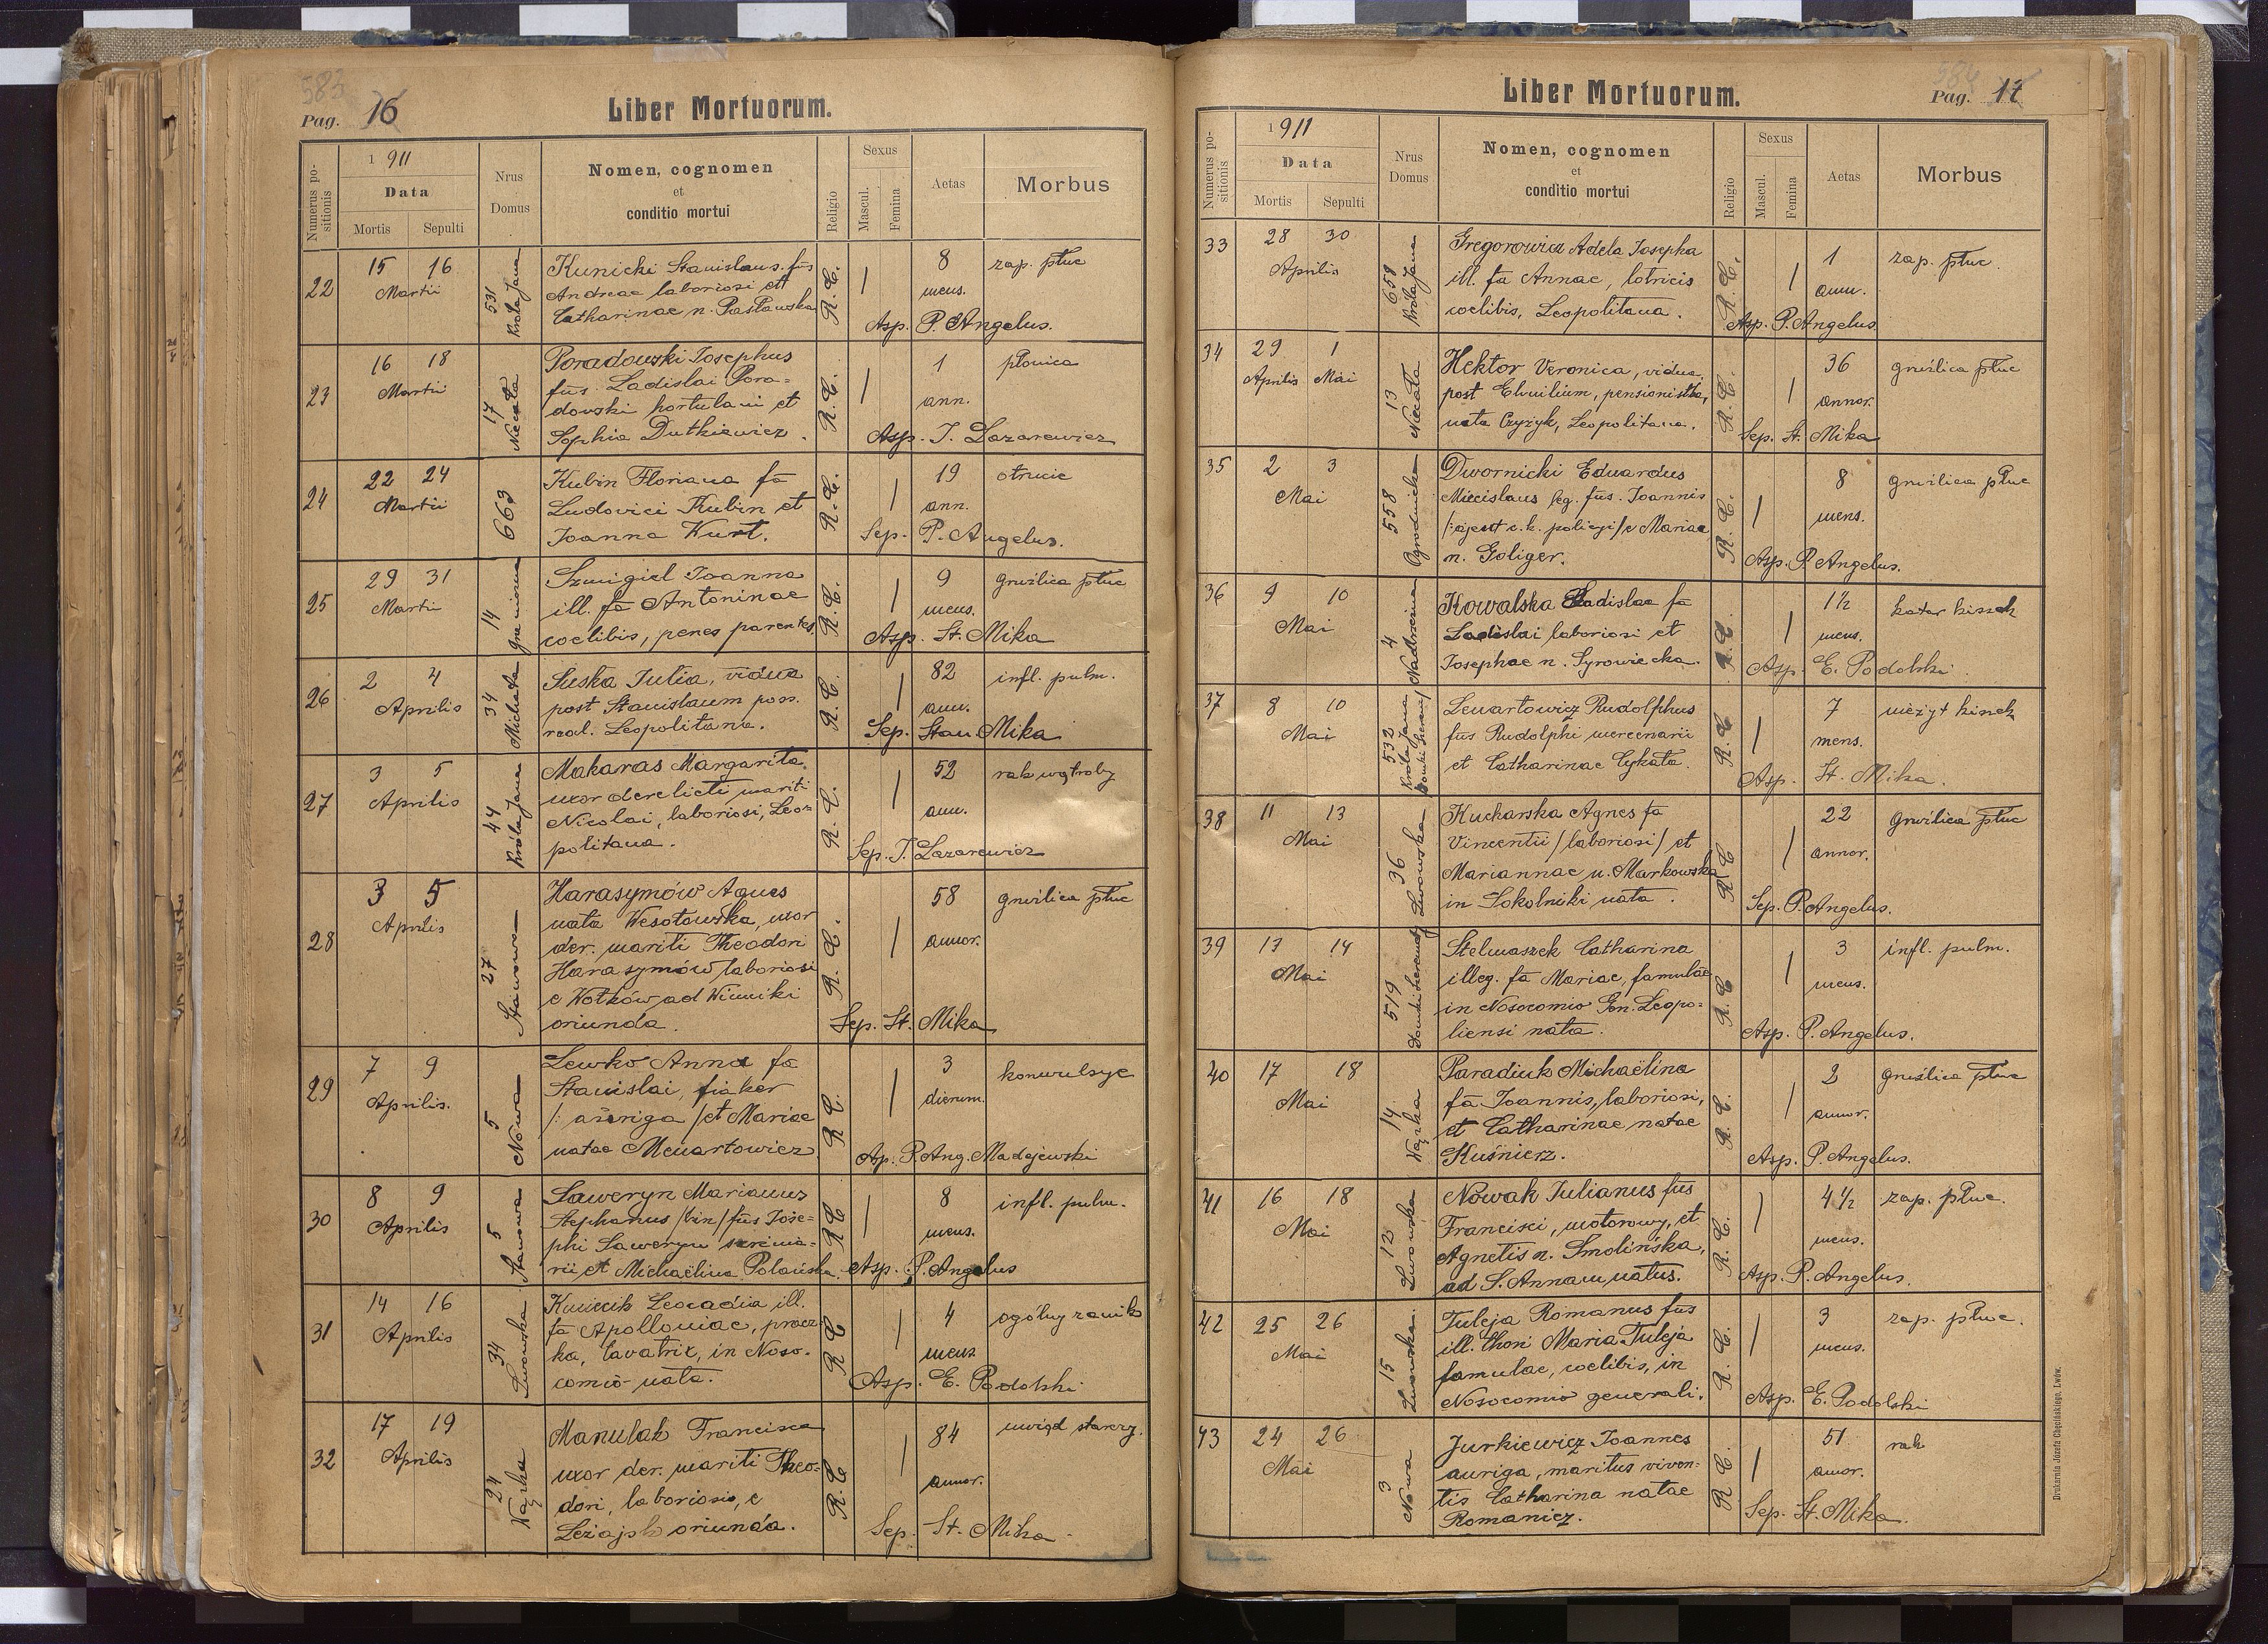 583
Pag. 16
Liber Mortuorum.
Numerus positionis
1911
Data
Mortis Sepulti
Nrus Domus
Nomen, cognomen
et
conditio mortui
Religio
Sexus
Mascul. Femina
Aetas
Morbus
22 15 16 Martii 531 Króla Jana
Kunicki Stanislaus fus
Andreae laboriosi et
Catharinae n. Pasławska
R. C. 8 mens. zap. płuc
Asp. P. Angelus.
23 16 18 Martii 17 Niecała
Poradowski Josephus
fus Ladislai Pora=
dowski hortulani et
Sophia Dutkiewicz.
R. C. 1 ann. płonica
Asp. J. Lazarewicz
24 22 24 Martii 663
Kubin Floriana fa
Ludovici Kubin et
Joanna Kurt.
R. C. 19 ann. otrucie
Sep. P. Angelus.
25 29 31 Martii 14
Szmigiel Joanna
ill. fa Antoninae
coelibis, penes parentes.
R. C. 9 mens. gruźlica płuc
Asp. St. Mika
26 2 4 Aprilis 34 Michała
Suska Julia, vidua
post Stanislaum poss.
real. Leopolitana.
R. C. 82 ann. infl. pulm.
Sep. Stan. Mika
27 3 5 Aprilis 44 Króla Jana
Makaras Margarita
uxor derelicti mariti
Nicolai, laboriosi, Leo=
politana.
R. C. 52 ann. rak wątroby
Sep. J. Lazarewicz
28 3 5 Aprilis 27 Stawowa
Harasymów Agnes
nata Wesołowska, uxor
der. mariti Theodori
Harasymów laboriosi
e Wołków ad Winniki
oriunda.
R. C. 58 annor. gruźlica płuc
Sep. St. Mika
29 7 9 Aprilis. 5 Nowa
Lewko Anna fa
Stanislai, fiaker
/: auriga / et Mariae
natae Menartowicz
R C. 3 dierum. konwulsye
Asp. P. Ang. Madejewski
30 8 9 Aprilis 5 Stawowa
Saweryn Marianus
Stephanus /bin/ fus Jose=
phi Saweryn scrinia=
rii et Michaëlina Polańska.
R C 8 mens. infl. pulm.
Asp. P. Angelus
31 14 16 Aprilis 34 Lwowska
Kmiecik Leocadia ill.
fa Apolloniae, pracz
ka, lavatrix, in Noso-
comio nata.
R C 4 mens ogólny zanik
Asp. E. Podolski
32 17 19 Aprilis 24 Wązka
Manulak Francisca
uxor der. mariti Theo=
dori, laboriosi, e
Leżajsk oriunda.
R. C 84 annor. uwiąd starczy.
Sep. St. Mika
584
Liber Mortuorum.
Pag. 17
Numerus positionis
1911
Data
Mortis Sepulti
Nrus Domus
Nomen, cognomen
et
conditio mortui
Religio
Sexus
Mascul. Femina
Aetas
Morbus
33 28 30 Aprilis 658 Króla Jana
Gregorowicz Adela Josepha
ill. fa Annae, lotricis
coelibis, Leopolitana.
R. C. 1 ann. zap. płuc.
Asp. P. Angelus
34 29 1 Aprilis Mai 13 Niecała
Hektor Veronica, vidua
post Elmilium, pensionistka,
nata Czyżyk, Leopolitana.
R. C. 36 annor. gruźlica płuc
Sep. St. Mika
35 2 3 Mai 558 Ogrodnicka
Dwornicki Eduardus
Miecislaus leg. fus. Joannis
/: ajent c.k. policyi / e Mariae
n. Goliger.
R. C. 8 mens. gruźlica płuc
Asp. P. Angelus.
36 9 10 Mai 4
Kowalska Ladislaa fa
Ladislai laboriosi et
Josephae n. Syrowiecka.
R. C. 1½ mens. katar kiszek
Asp. E. Podolski
37 8 10 Mai 532 Króla Jana
Lewartowicz Rudolphus
fus Rudolphi mercenarii
et Catharinae Cykała.
R. C 7 mens. nieżyt kiszek
Asp. St. Mika.
38 11 13 Mai 36 Lwowska
Kucharska Agnes fa
Vincentii / laboriosi / et
Mariannae n. Markowska
in Sokolniki nata.
R C 22 annor. gruźlica płuc
Sep. P. Angelus.
39 13 14 Mai 519
Stelmaszek Catharina
illeg. fa Mariae, famulae
in Nosocomio Gen. Leopo=
liensi nata.
R. C 3 mens. infl. pulm.
Asp. P. Angelus.
40 17 18 Mai 14 Wązka
Paradiuk Michaëlina
fa Joannis, laboriosi,
et Catharinae natae
Kuśnierz.
R. C. 2 annor. gruźlica płuc
Asp. P. Angelus.
41 16 18 Mai 12 Lwowska
Nowak Julianus fus
Francisci, motorowy, et
Agnetis n. Smolińska,
ad S. Annam natus.
R. C. 4½ mens. zap. płuc.
Asp. P. Angelus.
42 25 26 Mai 15 Lwowska
Tuleja Romanus fus
ill. thori Maria Tuleja
famulae, coelibis, in
Nosocomio generali.
R. C. 3 mens. zap. płuc.
Asp. E. Podolski
43 24 26 Mai 3 Nowa
Jurkiewicz Joannes
auriga, maritus viven=
tis Catharina natae
Romanicz.
R C. 51 annor. rak
Sep. St. Mika.
Drukarnia Józefa Chęcińskiego, Lwów.